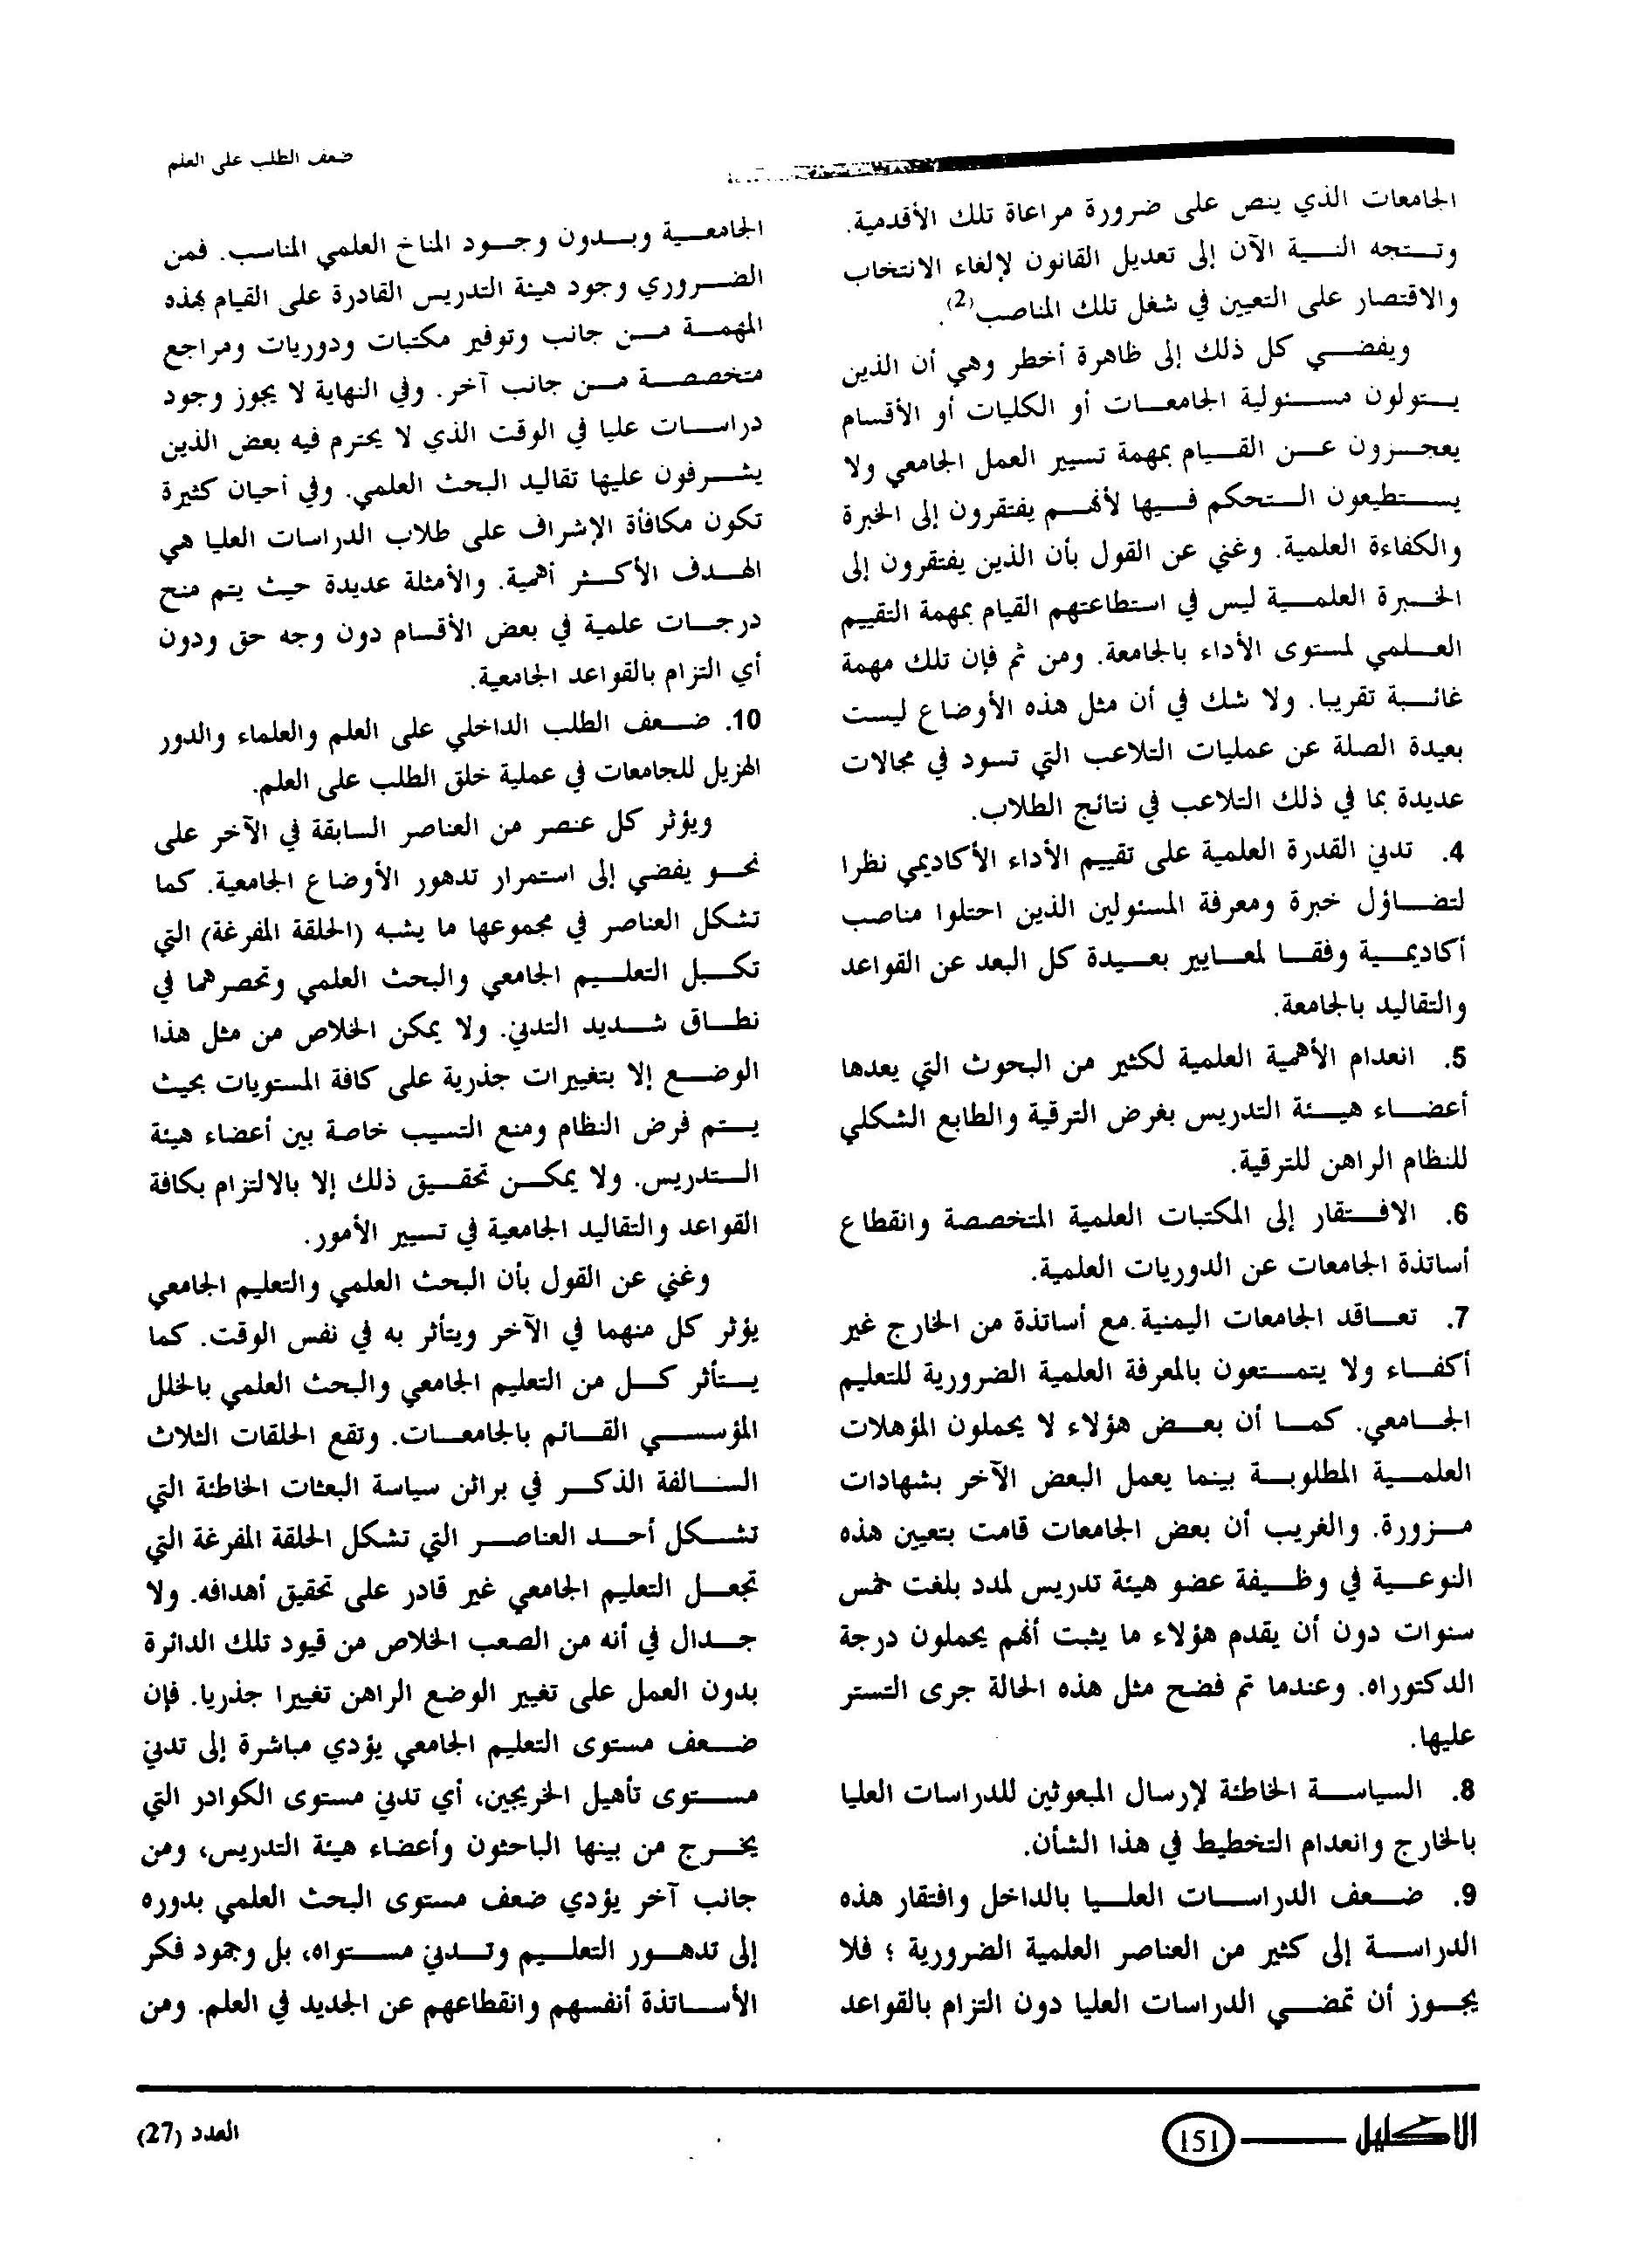 ضعف الطلب على العلم
الجامعات الذي ينص على ضرورة مراعاة تلك الأقدمية.
وتتجه النية الآن إلى تعديل القانون لإلغاء الانتخاب
والاقتصار على التعيين في شغل تلك المناصب(2).
ويفضي كل ذلك إلى ظاهرة أخطر وهي أن الذين
يتولون مسئولية الجامعات أو الكليات أو الأقسام
يعجزون عن القيام بمهمة تسيير العمل الجامعي ولا
يستطيعون التحكم فيها لأنهم يفتقرون إلى الخبرة
والكفاءة العلمية. وغني عن القول بأن الذين يفتقرون إلى
الخبرة العلمية ليس في استطاعتهم القيام بمهمة التقييم
العلمي لمستوى الأداء بالجامعة. ومن ثم فإن تلك مهمة
غائبة تقريبا. ولا شك في أن مثل هذه الأوضاع ليست
بعيدة الصلة عن عمليات التلاعب التي تسود في مجالات
عديدة بما في ذلك التلاعب في نتائج الطلاب.
4. تدني القدرة العلمية على تقييم الأداء الأكاديمي نظرا
لتضاؤل خبرة ومعرفة المسئولين الذين احتلوا مناصب
أكاديمية وفقا لمعايير بعيدة كل البعد عن القواعد
والتقاليد بالجامعة.
5. انعدام الأهمية العلمية لكثير من البحوث التي يعدها
أعضاء هيئة التدريس بغرض الترقية والطابع الشكلي
للنظام الراهن للترقية.
6. الافتقار إلى المكتبات العلمية المتخصصة وانقطاع
أساتذة الجامعات عن الدوريات العلمية.
7. تعاقد الجامعات اليمنية مع أساتذة من الخارج غير
أكفاء ولا يتمتعون بالمعرفة العلمية الضرورية للتعليم
الجامعي. كما أن بعض هؤلاء لا يحملون المؤهلات
العلمية المطلوبة بينما يعمل البعض الآخر بشهادات
مزورة. والغريب أن بعض الجامعات قامت بتعيين هذه
النوعية في وظيفة عضو هيئة تدريس لمدد بلغت خمس
سنوات دون أن يقدم هؤلاء ما يثبت أنهم يحملون درجة
الدكتوراه. وعندما تم فضح مثل هذه الحالة جرى التستر
عليها.
8. السياسة الخاطئة لإرسال المبعوثين للدراسات العليا
بالخارج وانعدام التخطيط في هذا الشأن.
9. ضعف الدراسات العليا بالداخل وافتقار هذه
الدراسة إلى كثير من العناصر العلمية الضرورية ؛ فلا
يجوز أن تمضي الدراسات العليا دون التزام بالقواعد
الجامعية وبدون وجود المناخ العلمي المناسب. فمن
الضروري وجود هيئة التدريس القادرة على القيام بهذه
المهمة من جانب وتوفير مكتبات ودوريات ومراجع
متخصصة من جانب آخر. وفي النهاية لا يجوز وجود
دراسات عليا في الوقت الذي لا يحترم فيه بعض الذين
يشرفون عليها تقاليد البحث العلمي. وفي أحيان كثيرة
تكون مكافأة الإشراف على طلاب الدراسات العليا هي
الهدف الأكثر أهمية. والأمثلة عديدة حيث يتم منح
درجات علمية في بعض الأقسام دون وجه حق ودون
أي التزام بالقواعد الجامعية.
10. ضعف الطلب الداخلي على العلم والعلماء والدور
الهزيل للجامعات في عملية خلق الطلب على العلم.
ويؤثر كل عنصر من العناصر السابقة في الآخر على
نحو يفضي إلى استمرار تدهور الأوضاع الجامعية. كما
تشكل العناصر في مجموعها ما يشبه (الحلقة المفرغة) التي
تكبل التعليم الجامعي والبحث العلمي وتحصرهما في
نطاق شديد التدني. ولا يمكن الخلاص من مثل هذا
الوضع إلا بتغييرات جذرية على كافة المستويات بحيث
يتم فرض النظام ومنع التسيب خاصة بين أعضاء هيئة
التدريس. ولا يمكن تحقيق ذلك إلا بالالتزام بكافة
القواعد والتقاليد الجامعية في تسيير الأمور.
وغني عن القول بأن البحث العلمي والتعليم الجامعي
يؤثر كل منهما في الآخر ويتأثر به في نفس الوقت. كما
يتأثر كل من التعليم الجامعي والبحث العلمي بالخلل
المؤسسي القائم بالجامعات. وتقع الحلقات الثلاث
السالفة الذكر في براثن سياسة البعثات الخاطئة التي
تشكل أحد العناصر التي تشكل الحلقة المفرغة التي
تجعل التعليم الجامعي غير قادر على تحقيق أهدافه. ولا
جدال في أنه من الصعب الخلاص من قيود تلك الدائرة
بدون العمل على تغيير الوضع الراهن تغييرا جذريا. فإن
ضعف مستوى التعليم الجامعي يؤدي مباشرة إلى تدني
مستوى تأهيل الخريجين، أي تدني مستوى الكوادر التي
يخرج من بينها الباحثون وأعضاء هيئة التدريس، ومن
جانب آخر يؤدي ضعف مستوى البحث العلمي بدوره
إلى تدهور التعليم وتدني مستواه، بل وجمود فكر
الأساتذة أنفسهم وانقطاعهم عن الجديد في العلم. ومن
الاكليل
151
العدد (27)